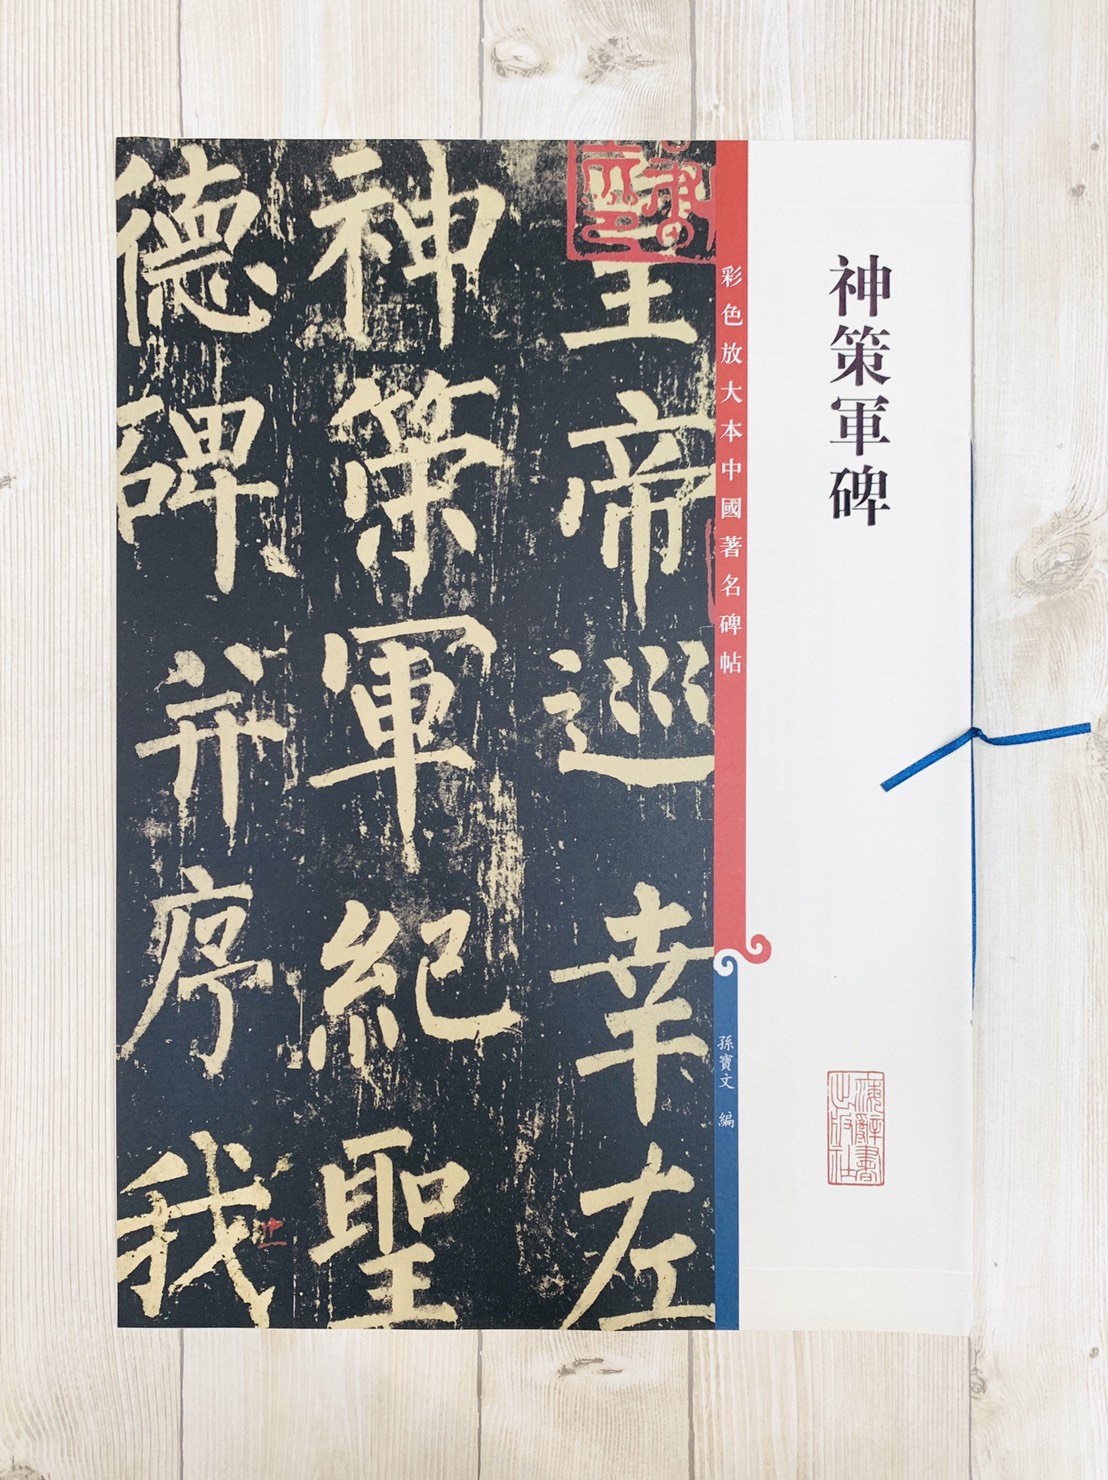 神策軍碑
彩色放大本中國著名碑帖
孫寶文 編
上海辭書出版社
皇帝巡幸左
神策軍紀聖
德碑并序我
止